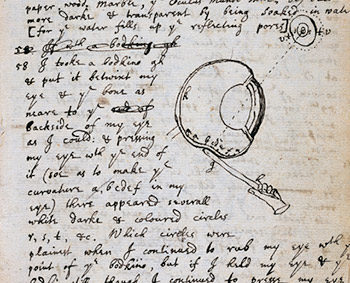 paper, wood, marble, ye Oculus Mundi stone, &c become
more darke & transparent by being soaked in water
[for ye water fills up ye reflecting pores]
58 I tooke a bodkine gh
& put it betwixt my
eye & ye bone as
neare to ye end of
backside of my eye
as I could: & pressing
my eye wth ye end of
it (soe as to make ye
curvature a, bcdef in my
eye) there appeared severall
white darke & coloured circles
r, s, t, &c. Which circles were
plainest when I continued to rub my eye wth ye
point of ye bodkine, but if I held my eye & ye
bodkin still, though I continued to presse my eye